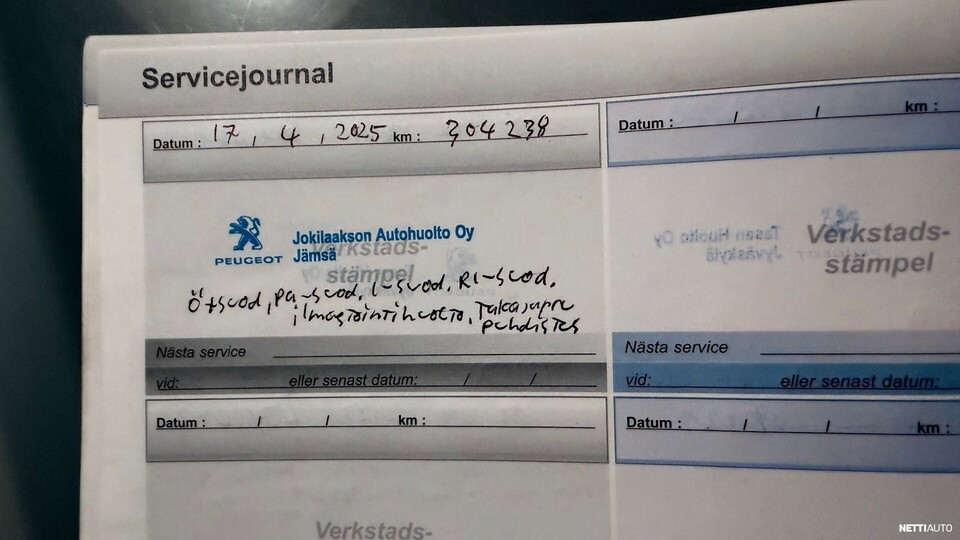 Servicejournal
Datum : 17 , 4 , 2025 km : 304238
PEUGEOT
Jokilaakson Autohuolto Oy
Jämsä
Verkstads-
stämpel
Ö+suod, Pa-suod, I-suod, RI-suod,
ilmastointihuolto, Takajarru
puhdistus
Nästa service
vid: eller senast datum: / /
Datum : / / km :
Verkstads-
Datum : / / km :
Tasan Huolto Oy
Jyväskylä
Verkstads-
stämpel
Nästa service
vid: eller senast datum:
Datum : / / km :
NETTIAUTO